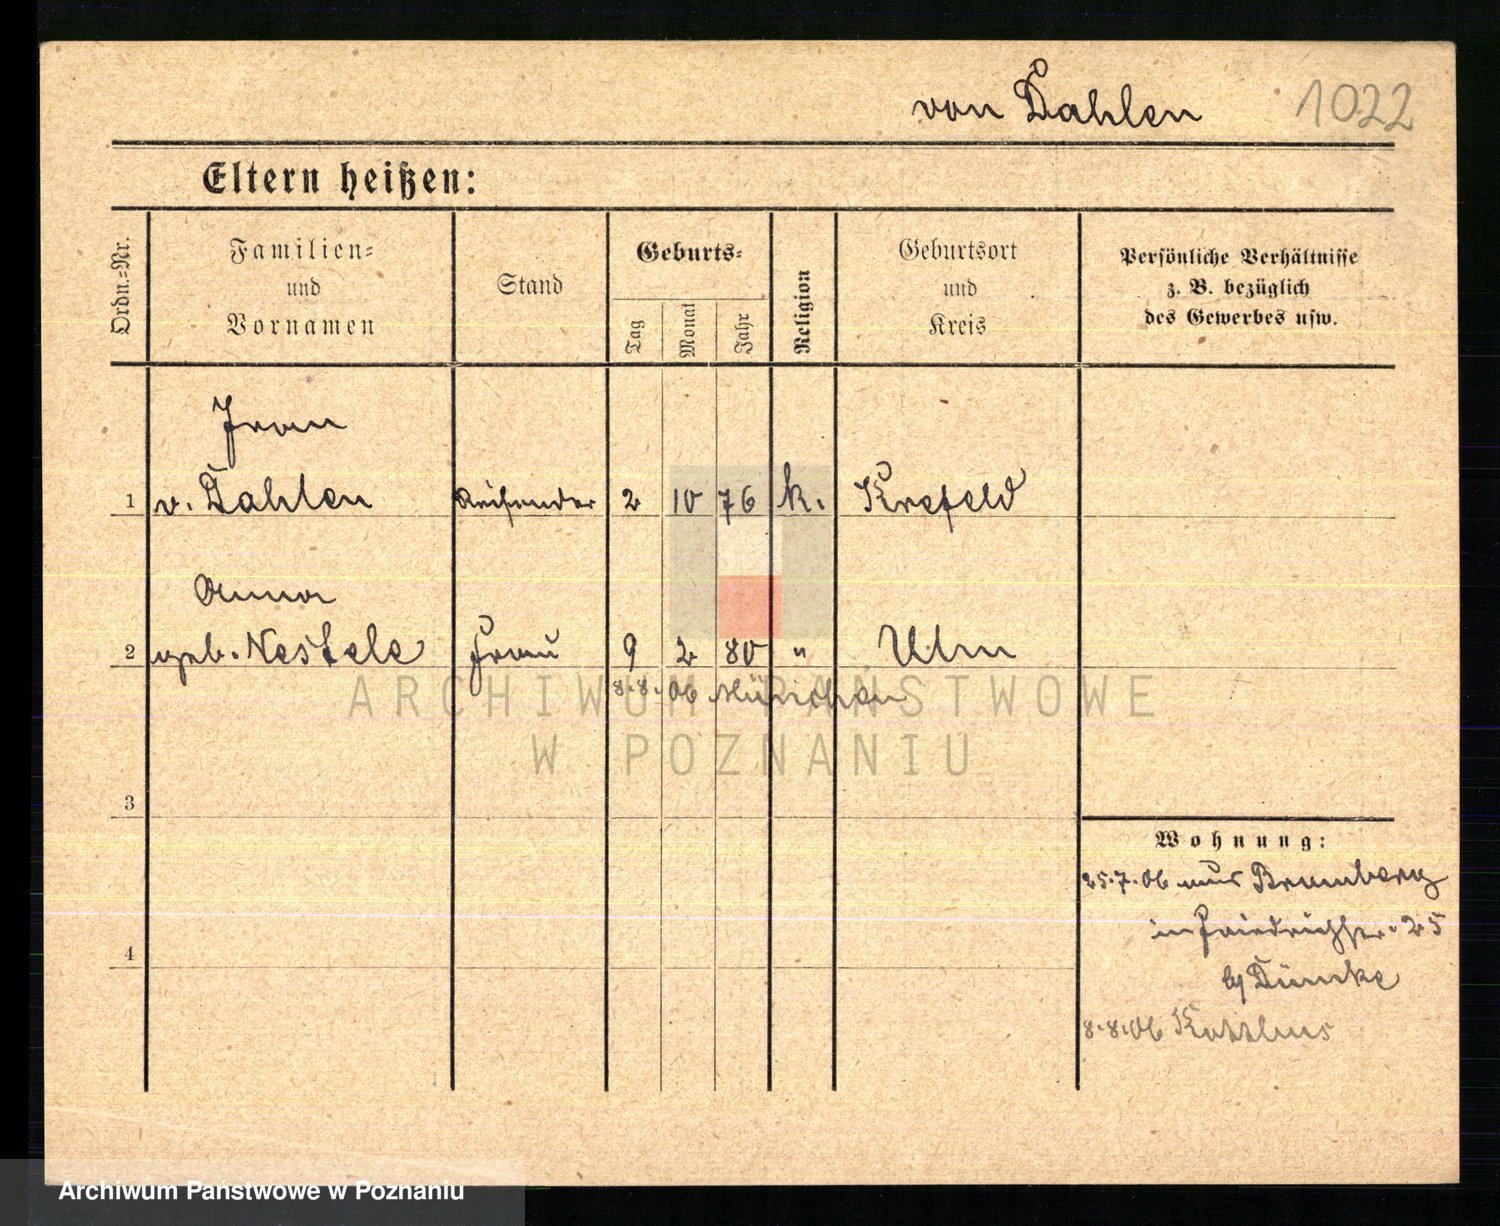 von Dahlen 1022
Eltern heißen:
Ordn.=Nr.
Familien=
und
Vornamen
Stand
Geburts=
Tag
Monat
Jahr
Religion
Geburtsort
und
Kreis
Persönliche Verhältnisse
z. B. bezüglich
des Gewerbes usw.
1 v. Dahlen Reisender 2 10 76 k. Krefeld
Anna
2 geb. Nestele Frau 9 2 80 " Ulm
8.8.06 München
ARCHIWUM PAŃSTWOWE
W POZNANIU
3
4
Wohnung:
25.7.06 aus Bromberg
in Friedrichstr. 25
b/ Dümke
8.8.06 Kottbus
Archiwum Państwowe w Poznaniu